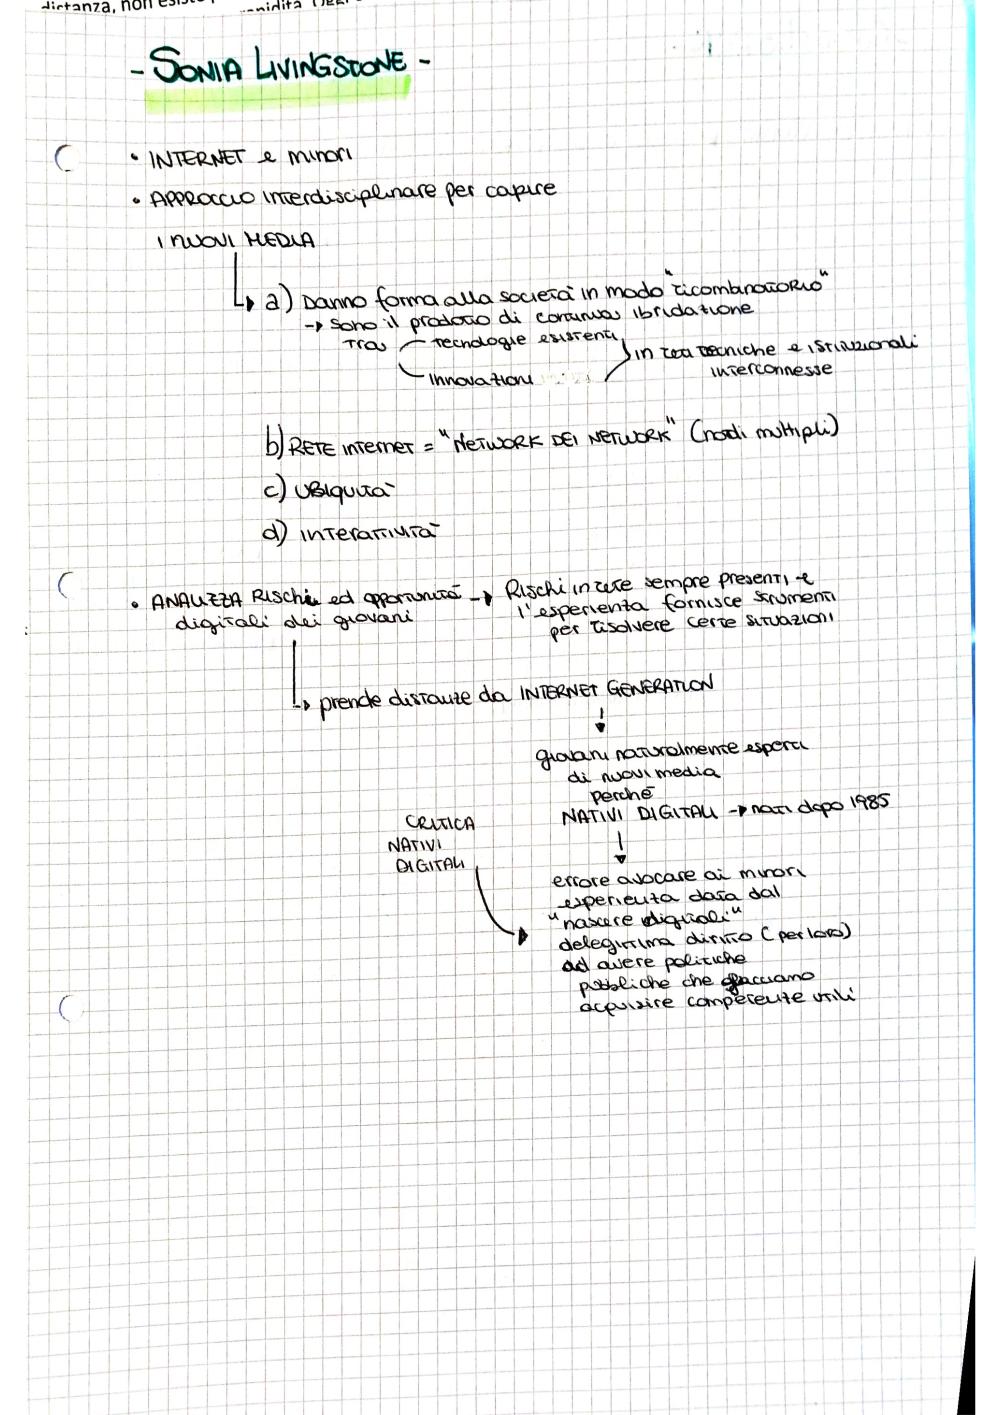 distanza, non
- SONIA LIVINGSTONE -
• INTERNET e minori
• APPROCCIO Interdisciplinare per capire
I NUOVI MEDIA
↳ a) Danno forma alla società in modo "ricombinatorio"
→ Sono il prodotto di continua ibridazione
Tra
tecnologie esistenti
innovazioni
in reti tecniche e istituzionali
interconnesse
b) RETE internet = "NETWORK DEI NETWORK" (nodi multipli)
c) UBIQUITÀ
d) INTERATTIVITÀ
• ANALIZZA RISCHI ed opportunità → Rischi in rete sempre presenti e
digitali dei giovani
l'esperienza fornisce strumenti
per risolvere certe situazioni
↳ prende distanze da INTERNET GENERATION
↓
giovani naturalmente esperti
di nuovi media
perché
NATIVI DIGITALI → nati dopo 1985
↓
CRITICA
NATIVI
DIGITALI
errore avocare ai minori
esperienza data dal
"nascere digitali"
delegittima diritto (per loro)
ad avere politiche
pubbliche che facciano
acquisire competenze utili